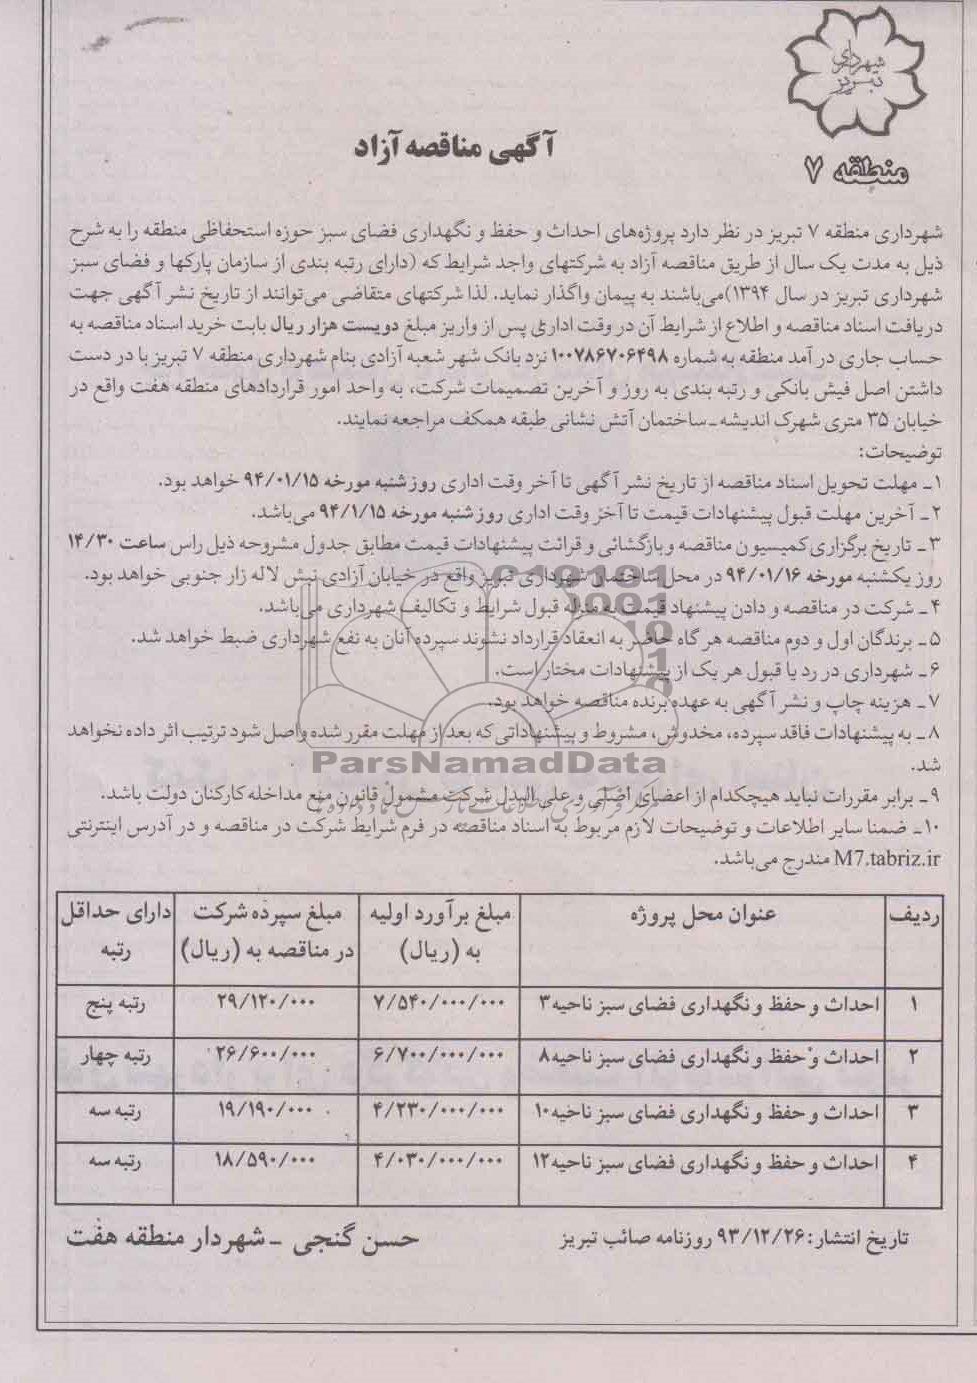 شهرداری
تبریز
منطقه ۷
آگهی مناقصه آزاد
شهرداری منطقه ۷ تبریز در نظر دارد پروژه‌های احداث و حفظ و نگهداری فضای سبز حوزه استحفاظی منطقه را به شرح
ذیل به مدت یک سال از طریق مناقصه آزاد به شرکتهای واجد شرایط که (دارای رتبه بندی از سازمان پارکها و فضای سبز
شهرداری تبریز در سال ۱۳۹۴)می‌باشند به پیمان واگذار نماید. لذا شرکتهای متقاضی می‌توانند از تاریخ نشر آگهی جهت
دریافت اسناد مناقصه و اطلاع از شرایط آن در وقت اداری پس از واریز مبلغ دویست هزار ریال بابت خرید اسناد مناقصه به
حساب جاری در آمد منطقه به شماره ۱۰۰۷۸۶۷۰۶۴۹۸ نزد بانک شهر شعبه آزادی بنام شهرداری منطقه ۷ تبریز با در دست
داشتن اصل فیش بانکی و رتبه بندی به روز و آخرین تصمیمات شرکت، به واحد امور قراردادهای منطقه هفت واقع در
خیابان ۳۵ متری شهرک اندیشه ـ ساختمان آتش نشانی طبقه همکف مراجعه نمایند.
توضیحات:
۱ـ مهلت تحویل اسناد مناقصه از تاریخ نشر آگهی تا آخر وقت اداری روز شنبه مورخه ۹۴/۰۱/۱۵ خواهد بود.
۲ـ آخرین مهلت قبول پیشنهادات قیمت تا آخر وقت اداری روز شنبه مورخه ۹۴/۱/۱۵ می‌باشد.
۳ـ تاریخ برگزاری کمیسیون مناقصه و بازگشائی و قرائت پیشنهادات قیمت مطابق جدول مشروحه ذیل راس ساعت ۱۴/۳۰
روز یکشنبه مورخه ۹۴/۰۱/۱۶ در محل ساختمان شهرداری تبریز واقع در خیابان آزادی نبش لاله زار جنوبی خواهد بود.
۴ـ شرکت در مناقصه و دادن پیشنهاد قیمت به منزله قبول شرایط و تکالیف شهرداری می‌باشد.
۵ـ برندگان اول و دوم مناقصه هر گاه حاضر به انعقاد قرارداد نشوند سپرده آنان به نفع شهرداری ضبط خواهد شد.
۶ـ شهرداری در رد یا قبول هر یک از پیشنهادات مختار است.
۷ـ هزینه چاپ و نشر آگهی به عهده برنده مناقصه خواهد بود.
۸ـ به پیشنهادات فاقد سپرده، مخدوش، مشروط و پیشنهاداتی که بعد از مهلت مقرر شده واصل شود ترتیب اثر داده نخواهد
شد.
ParsNamadData
۹ـ برابر مقررات نباید هیچکدام از اعضای اصلی و علی البدل شرکت مشمول قانون منع مداخله کارکنان دولت باشد.
۱۰ـ ضمنا سایر اطلاعات و توضیحات لازم مربوط به اسناد مناقصه در فرم شرایط شرکت در مناقصه و در آدرس اینترنتی
M7.tabriz.ir مندرج می‌باشد.
ردیف عنوان محل پروژه مبلغ برآورد اولیه به (ریال) مبلغ سپرده شرکت در مناقصه به (ریال) دارای حداقل رتبه
۱ احداث و حفظ و نگهداری فضای سبز ناحیه ۳ ۷/۵۴۰/۰۰۰/۰۰۰ ۲۹/۱۲۰/۰۰۰ رتبه پنج
۲ احداث و حفظ و نگهداری فضای سبز ناحیه ۸ ۶/۷۰۰/۰۰۰/۰۰۰ ۲۶/۶۰۰/۰۰۰ رتبه چهار
۳ احداث و حفظ و نگهداری فضای سبز ناحیه ۱۰ ۴/۲۳۰/۰۰۰/۰۰۰ ۱۹/۱۹۰/۰۰۰ رتبه سه
۴ احداث و حفظ و نگهداری فضای سبز ناحیه ۱۲ ۴/۰۳۰/۰۰۰/۰۰۰ ۱۸/۵۹۰/۰۰۰ رتبه سه
تاریخ انتشار: ۹۳/۱۲/۲۶ روزنامه صائب تبریز
حسن گنجی ـ شهردار منطقه هفت